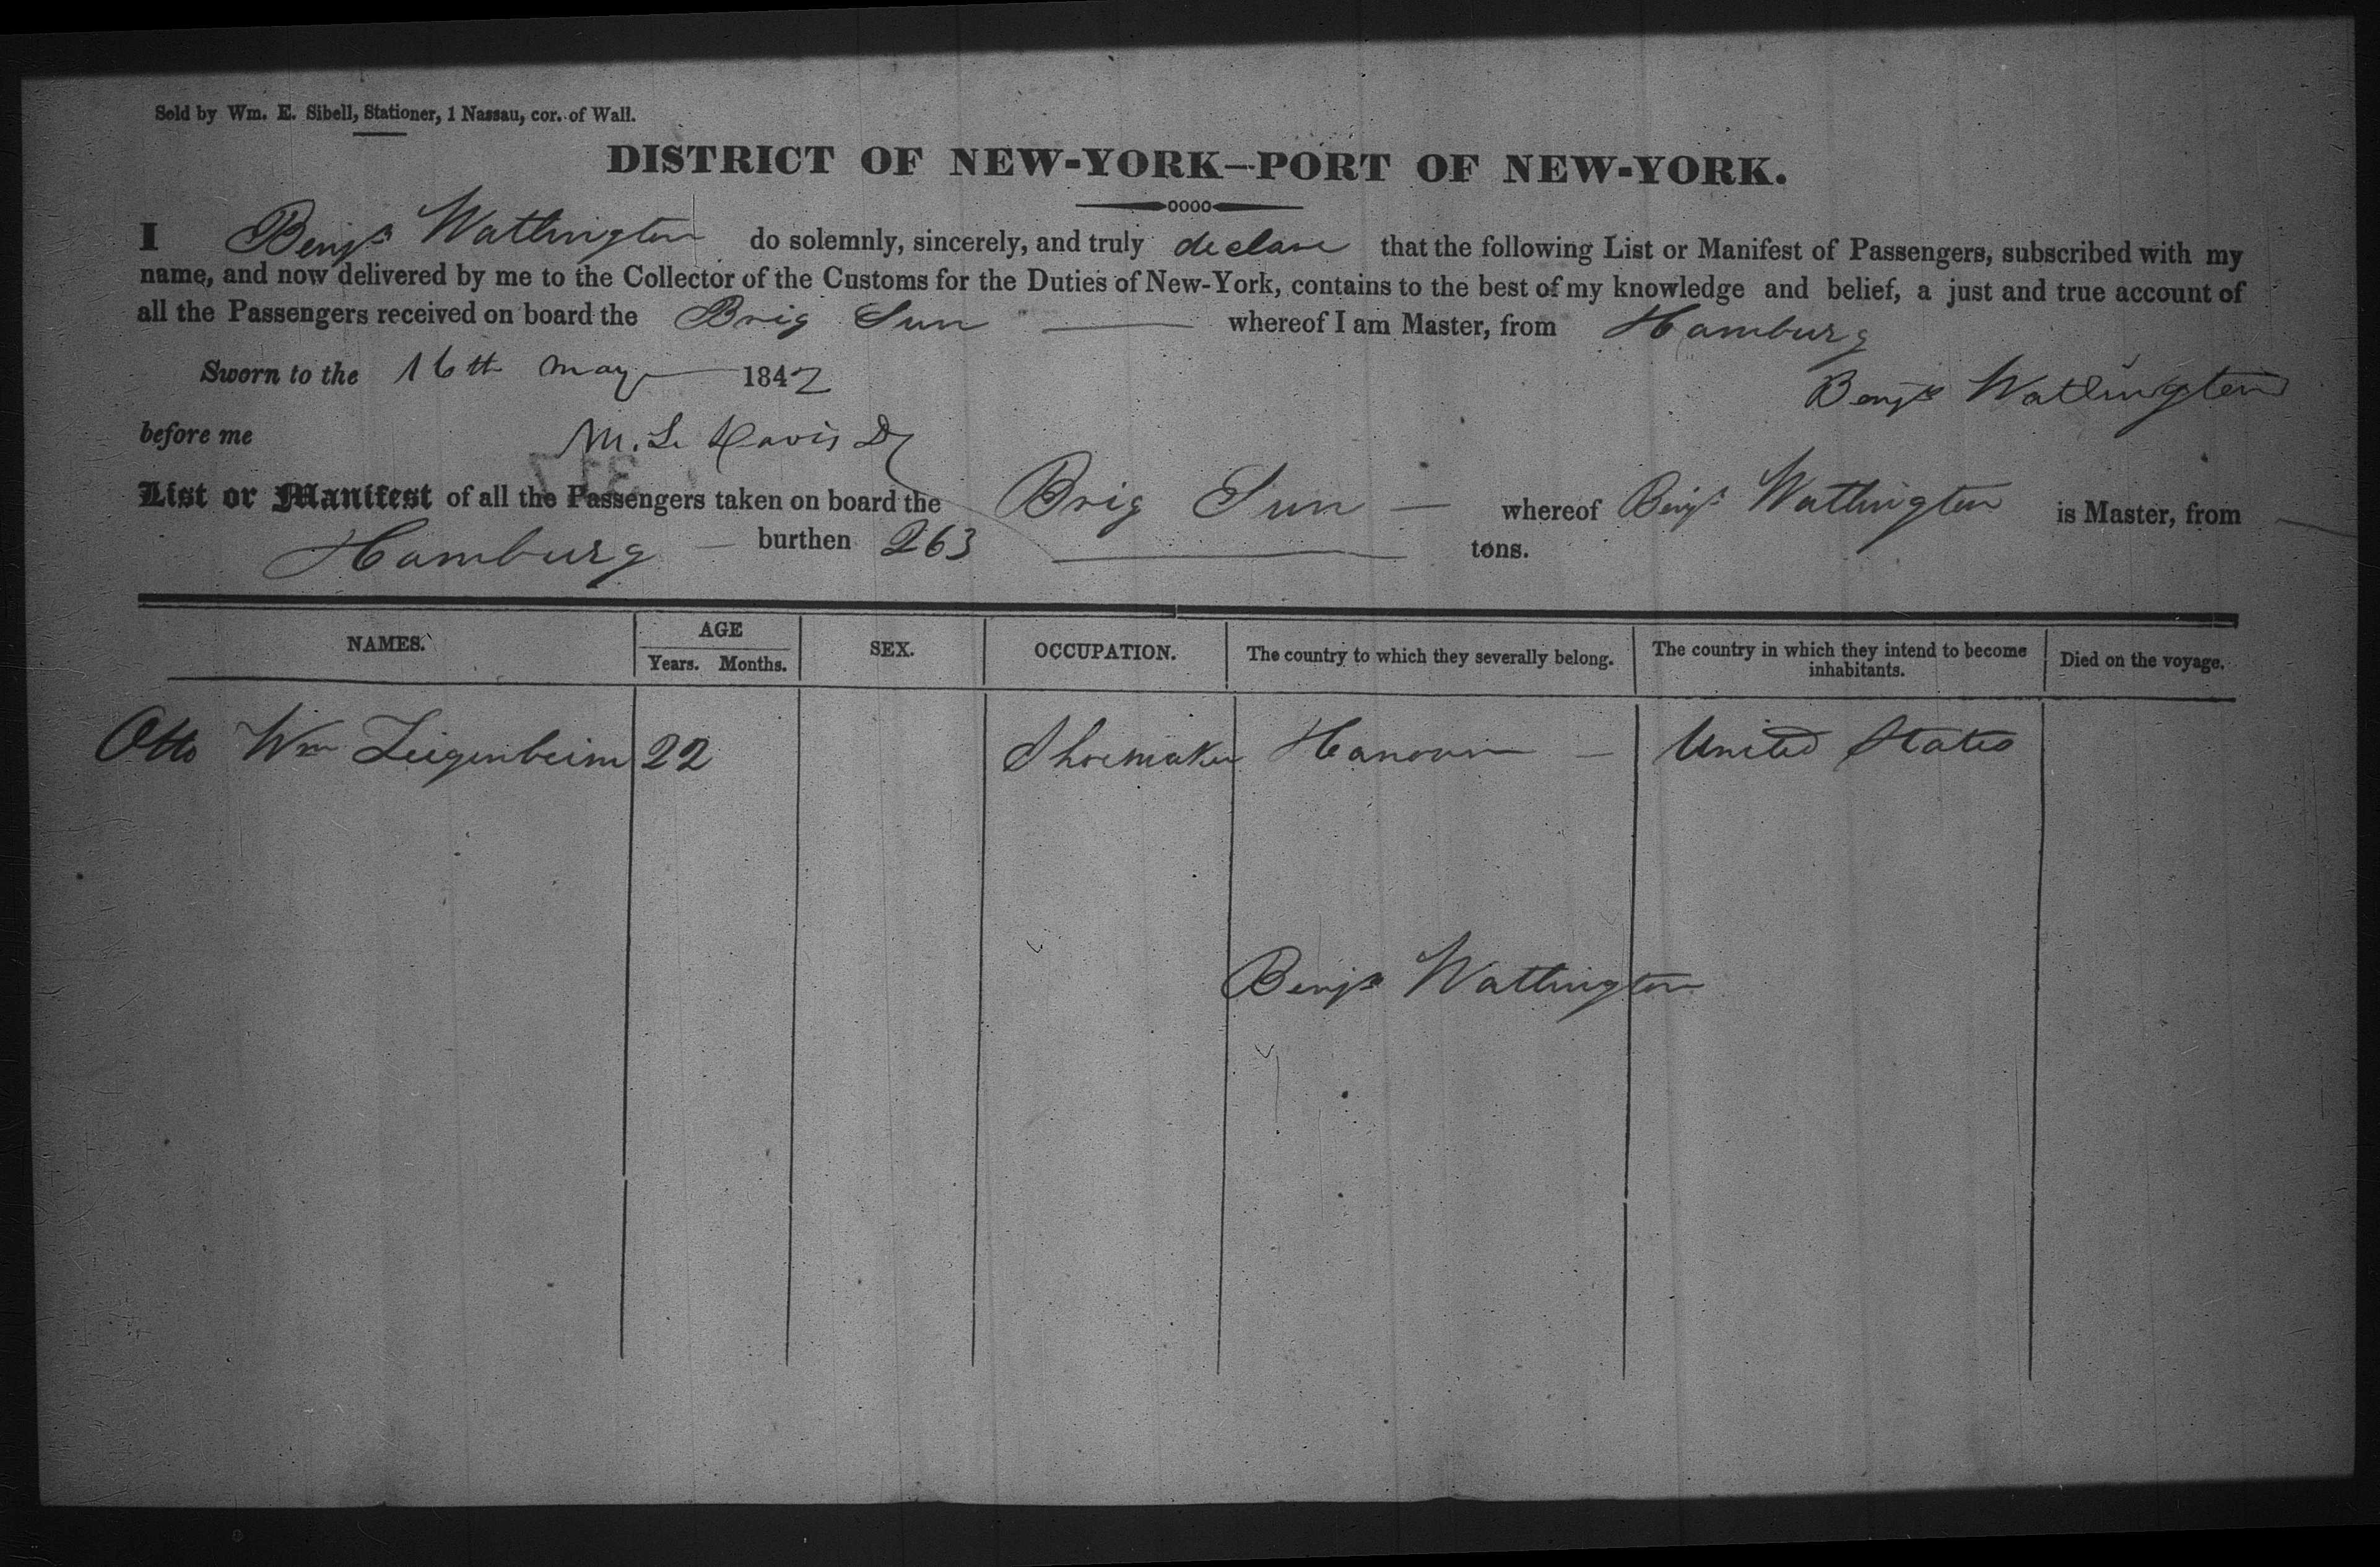 Sold by Wm. E. Sibell, Stationer, 1 Nassau, cor. of Wall.
DISTRICT OF NEW-YORK—PORT OF NEW-YORK.
I Benjn Watlington do solemnly, sincerely, and truly declare that the following List or Manifest of Passengers, subscribed with my
name, and now delivered by me to the Collector of the Customs for the Duties of New-York, contains to the best of my knowledge and belief, a just and true account of
all the Passengers received on board the Brig Sun — whereof I am Master, from Hamburg
Sworn to the 16th may 1842
Benjn Watlington
before me M. L. Davis
List or Manifest of all the Passengers taken on board the Brig Sun — whereof Benjn Watlington is Master, from
Hamburg — burthen 263 tons.
NAMES. AGE Years. Months. SEX. OCCUPATION. The country to which they severally belong. The country in which they intend to become inhabitants. Died on the voyage.
Otto Wm Zeigenbeim 22 Shoemaker Hanover — United States
Benjn Watlington